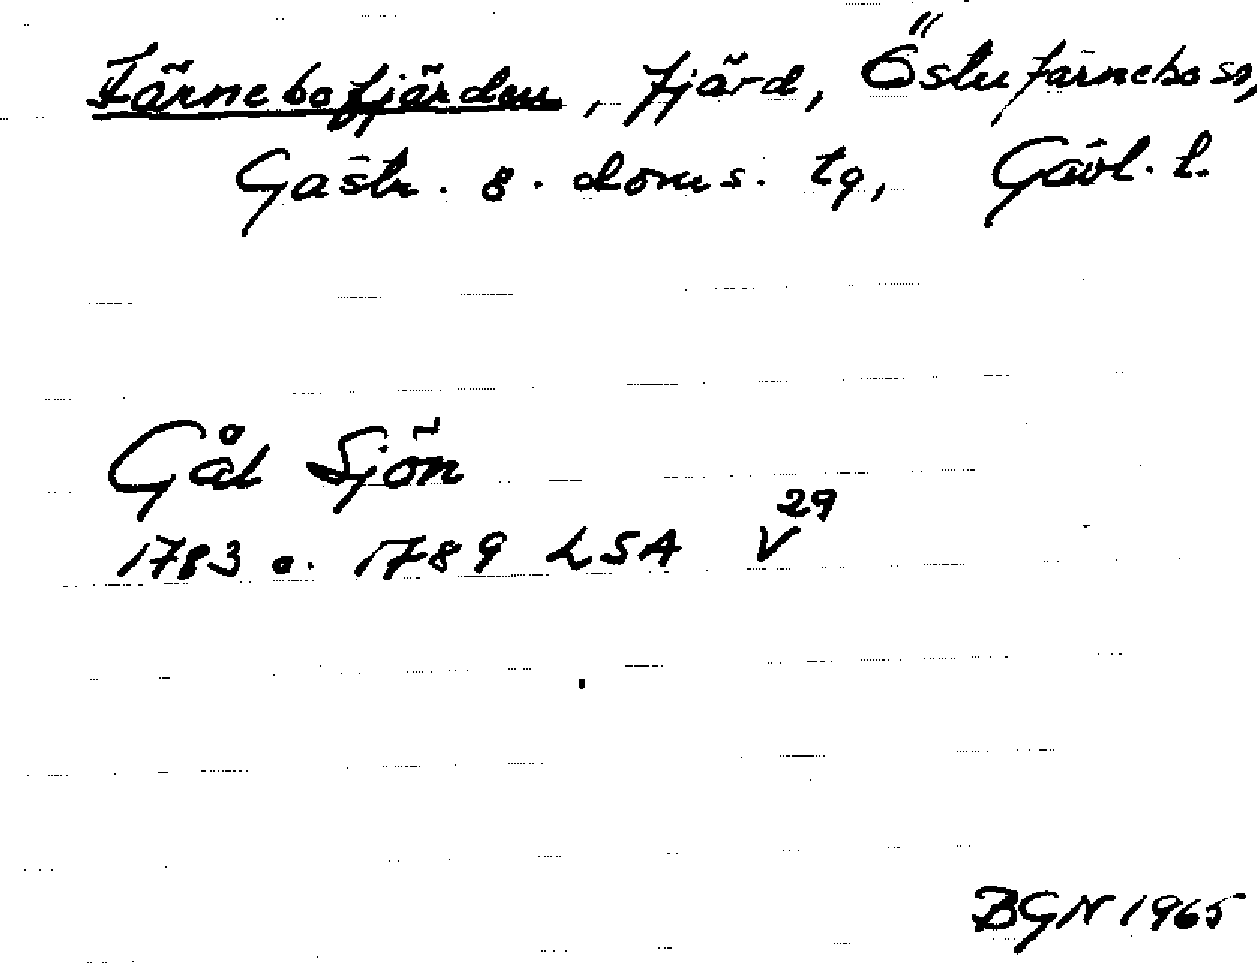 Färnebofjärden, fjärd, Österfärnebo sn,
Gästr. ö. doms. tg, Gävl. l.
Gål Sjön
1783 o. 1789 LSA V 29
BGN 1965